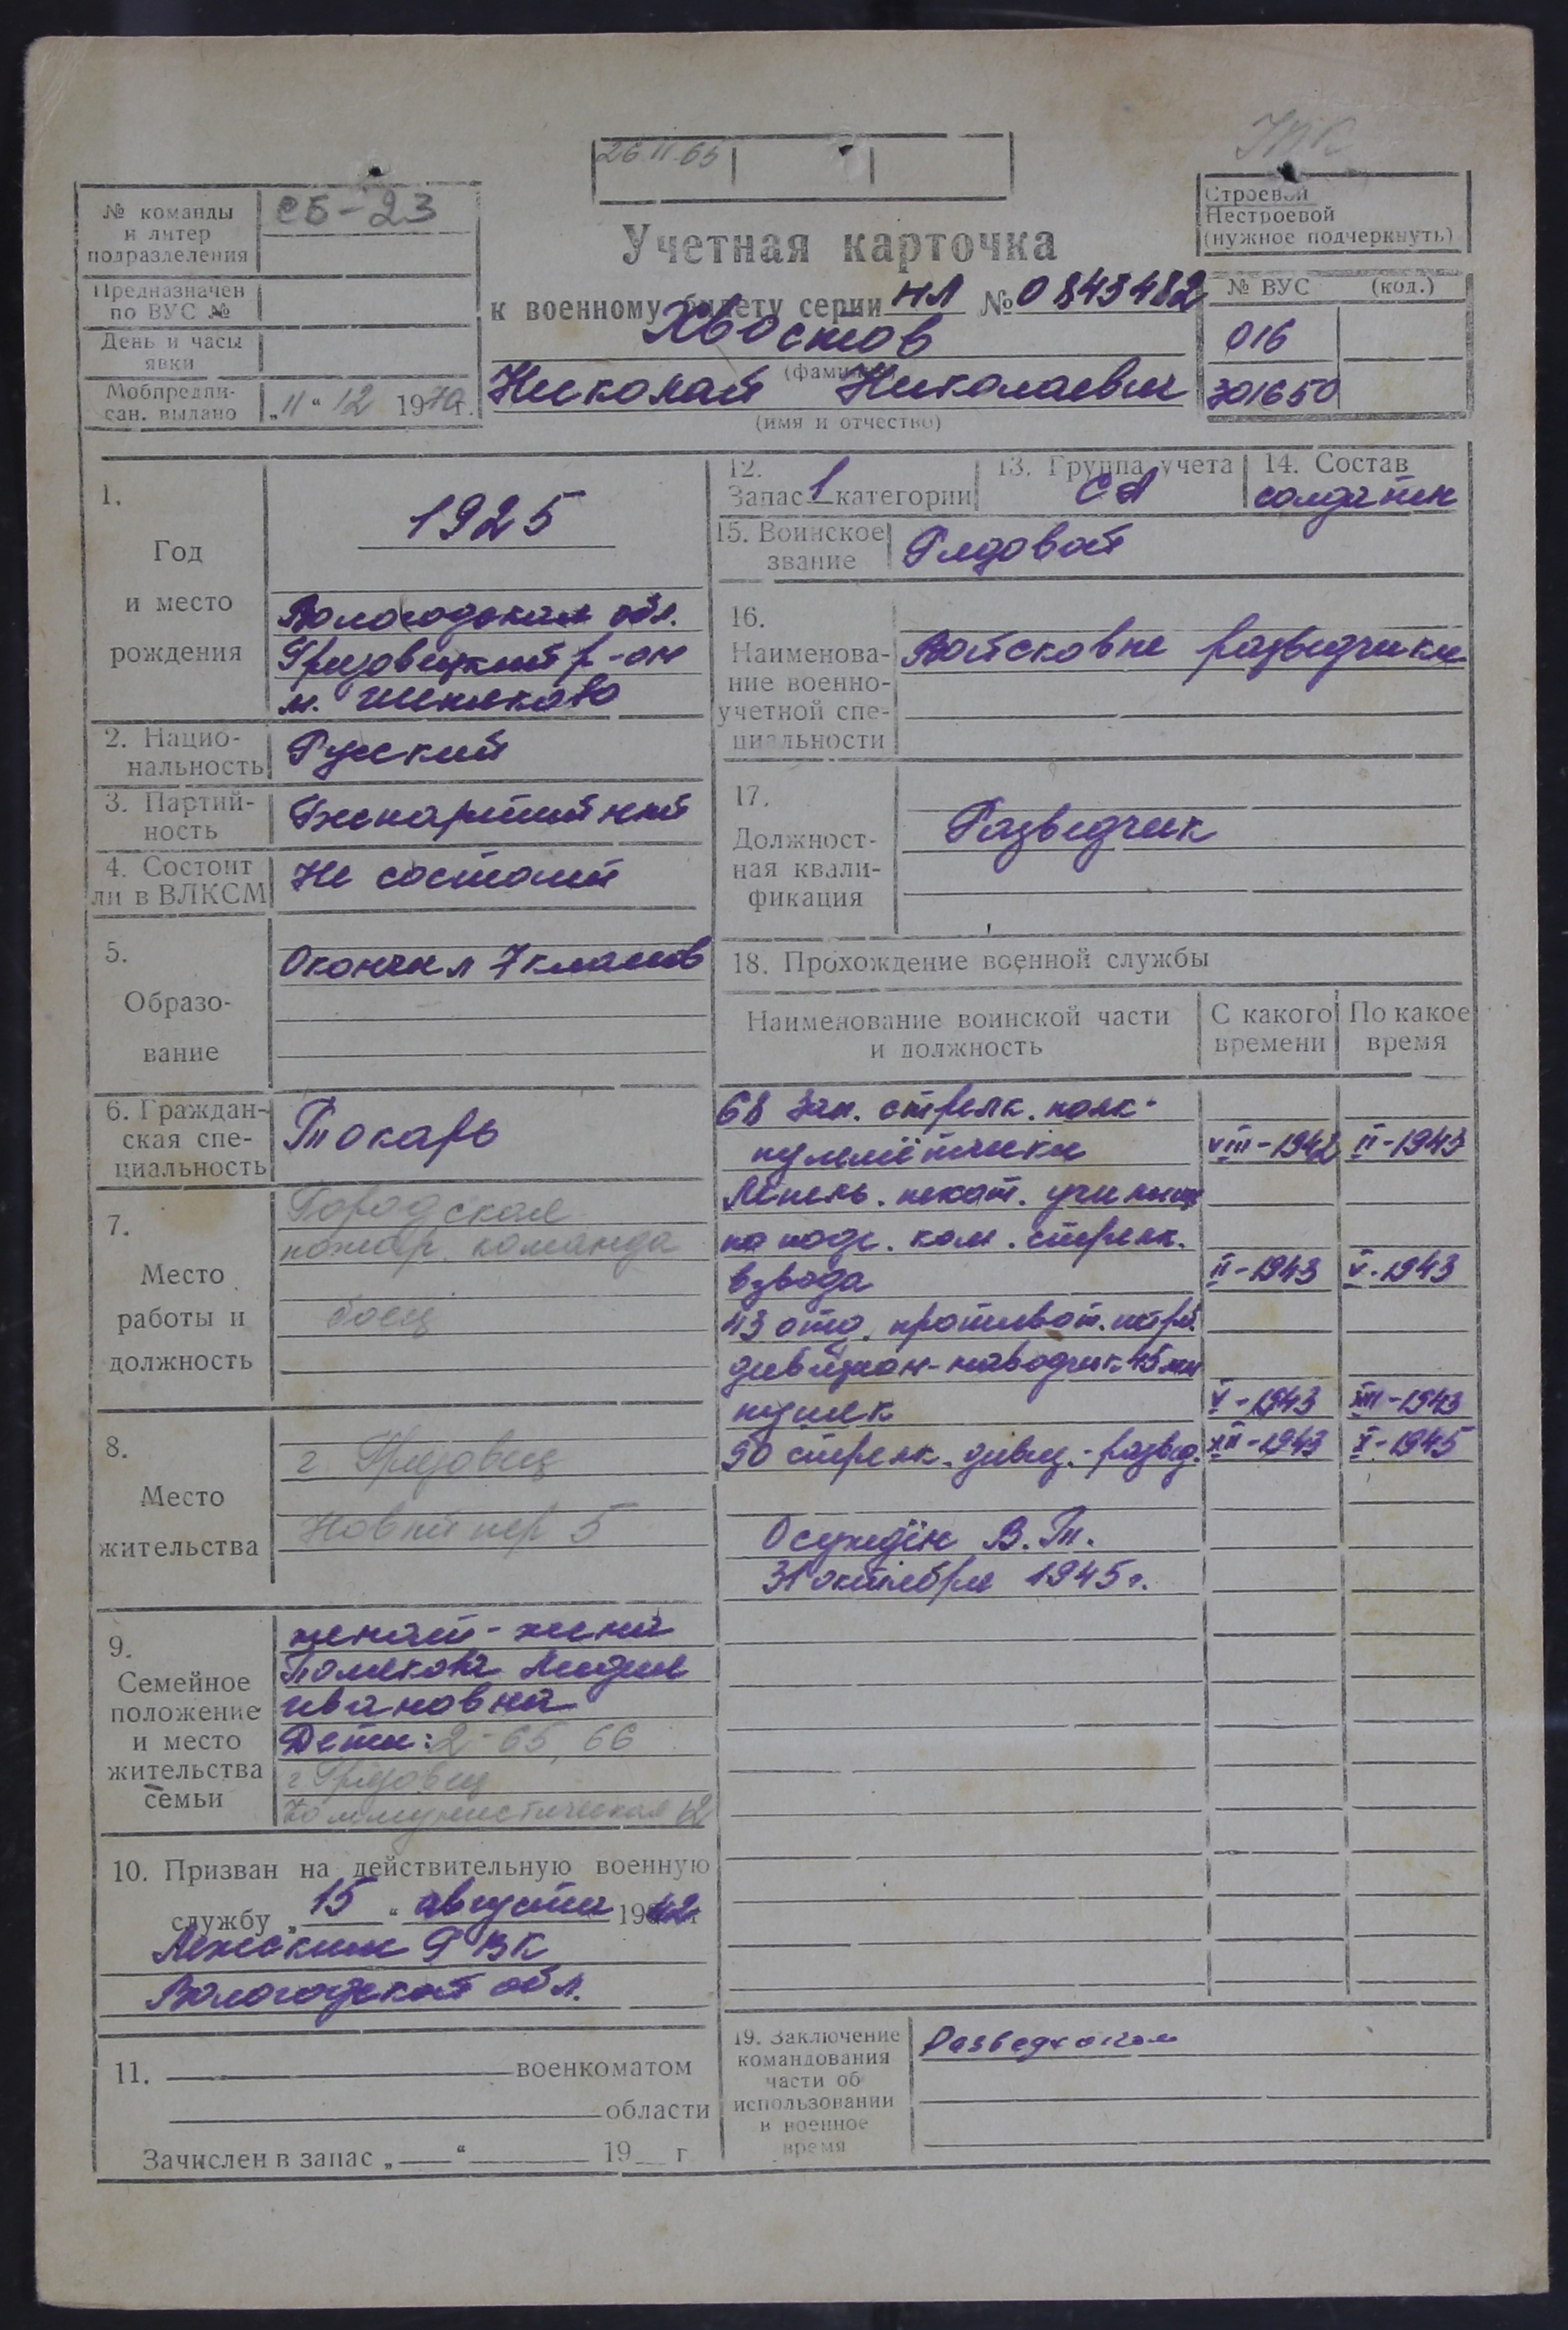 26.11.65
УПК
№ команды
и литер
подразделения
СБ-23
Предназначен
по ВУС №
День и часы
явки
Мобпредпи-
сан. выдано „11“ 12 1970г.
Учетная карточка
к военному билету серии НЛ № 0843482
Хвостов
(фамилия)
Николай Николаевич
(имя и отчество)
Строевой
Нестроевой
(нужное подчеркнуть)
№ ВУС (код.)
016
301650
1.
Год
и место
рождения
1925
Вологодская обл.
Грязовецкий р-он
2. Нацио-
нальность
Русский
3. Партий-
ность
Беспартийный
4. Состоит
ли в ВЛКСМ
Не состоит
5.
Образо-
вание
Окончил 7 классов
6. Граждан-
ская спе-
циальность
Токарь
7.
Место
работы и
должность
Городская
пожар. команда
боец
8.
Место
жительства
г Грязовец
Новый пер 5
9.
Семейное
положение
и место
жительства
семьи
женат - жена
Полякова Лидия
Ивановна
Дети: 2-65, 66
г Грязовец
Коммунистическая 12
10. Призван на действительную военную
службу „15“ августа 1942г
Лежским РВК
Вологодской обл.
11. военкоматом
области
Зачислен в запас „ “ 19 г
12.
Запас 1 категории
13. Группа учета
СА
14. Состав
солдатск
15. Воинское
звание
Рядовой
16.
Наименова-
ние военно-
учетной спе-
циальности
Войсковые разведчики
17.
Должност-
ная квали-
фикация
Разведчик
18. Прохождение военной службы
Наименование воинской части
и должность
С какого
времени
По какое
время
68 зап. стрелк. полк-
пулемётчики VIII-1942 II-1943
Лепель. пехот. училище
по подг. ком. стрелк.
взвода II-1943 V-1943
43 отд. противот. истреб.
дивизион-наводчик 45 мм
пушек V-1943 XII-1943
90 стрелк. дивиз.-развед. XII-1943 X-1945
Осуждён В.Т.
31 октября 1945г.
19. Заключение
командования
части об
использовании
в военное
время
Разведчиком